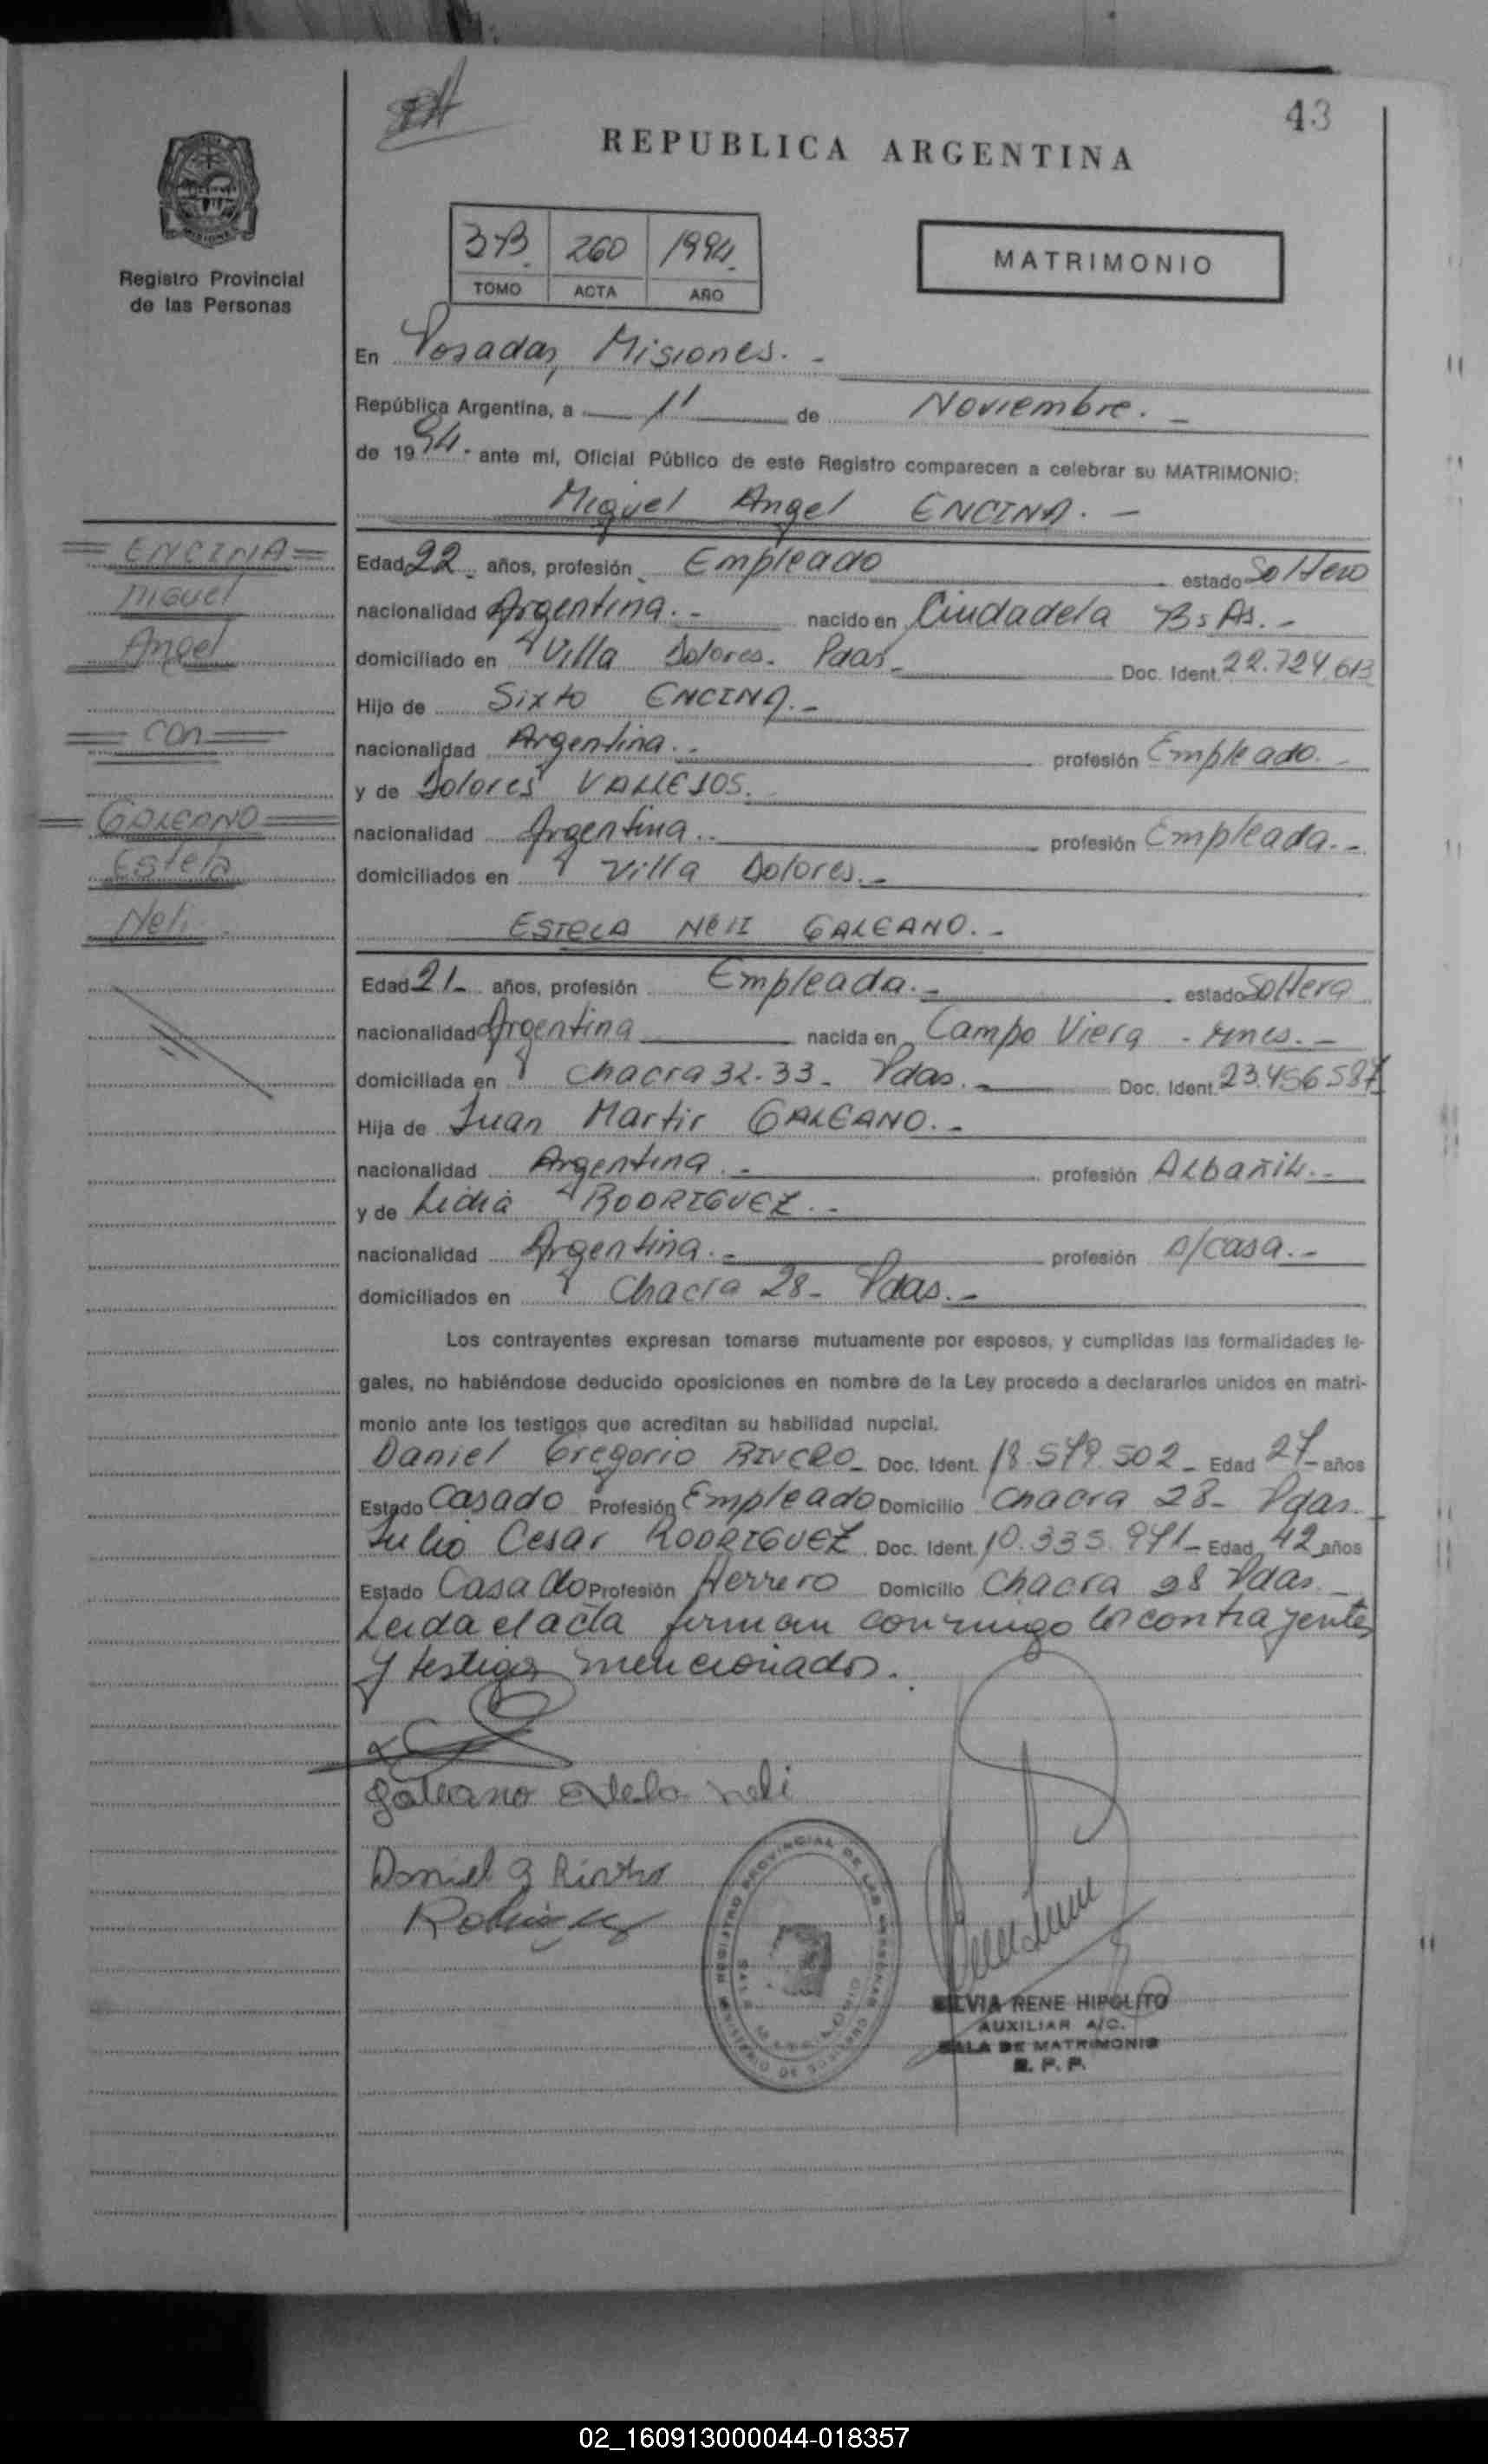 43
REPUBLICA ARGENTINA
Registro Provincial
de las Personas
3-B. 260 1994.
TOMO ACTA AÑO
MATRIMONIO
En Posadas, Misiones. -
República Argentina, a 11 de Noviembre. -
de 1994.- ante mí, Oficial Público de este Registro comparecen a celebrar su MATRIMONIO:
Miguel Angel ENCINA. -
= ENCINA =
Miguel
Angel
= con =
= GALEANO =
Estela
Neli
Edad 22 años, profesión Empleado estado Soltero
nacionalidad Argentina. - nacido en Ciudadela Bs As. -
domiciliado en Villa Dolores. Pdas. Doc. Ident. 22.724.613
Hijo de Sixto ENCINA. -
nacionalidad Argentina. - profesión Empleado. -
y de Dolores VALLEJOS.
nacionalidad Argentina.. profesión Empleada. -
domiciliados en Villa Dolores. -
ESTELA NELI GALEANO. -
Edad 21 años, profesión Empleada. - estado Soltera
nacionalidad Argentina nacida en Campo Viera - Mnes. -
domiciliada en Chacra 32-33- Pdas. - Doc. Ident. 23.456.587
Hija de Juan Martir GALEANO. -
nacionalidad Argentina. - profesión ALbañiL. -
y de Lidia RODRIGUEZ. -
nacionalidad Argentina. - profesión s/casa. -
domiciliados en Chacra 28- Pdas. -
Los contrayentes expresan tomarse mutuamente por esposos, y cumplidas las formalidades le-
gales, no habiéndose deducido oposiciones en nombre de la Ley procedo a declararlos unidos en matri-
monio ante los testigos que acreditan su habilidad nupcial.
Daniel Gregorio RIVERO- Doc. Ident. 18.579.502- Edad 27- años
Estado Casado Profesión Empleado Domicilio Chacra 28- Pdas. -
Julio Cesar RODRIGUEZ Doc. Ident. 10.335.971- Edad 42 años
Estado Casado Profesión Herrero Domicilio Chacra 28 Pdas -
Leida el acta firman conmigo los contrayentes
y testigos mencionados.
galeano Estela neli
Daniel G Rivero
Rodriguez
SILVIA RENE HIPOLITO
AUXILIAR A/C.
SALA DE MATRIMONIO
R. P. P.
02_160913000044-018357